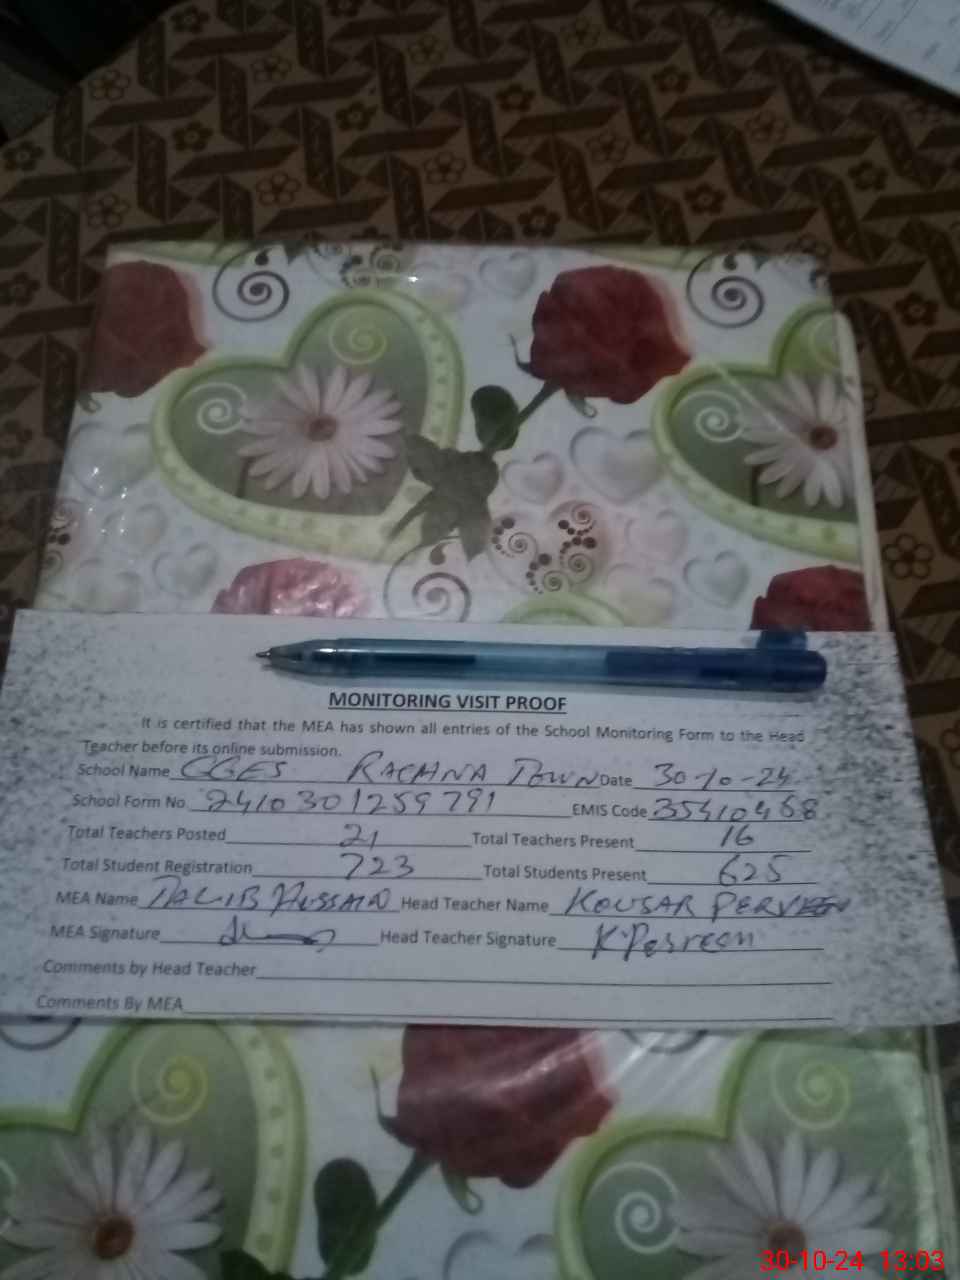 MONITORING VISIT PROOF
It is certified that the MEA has shown all entries of the School Monitoring Form to the Head
Teacher before its online submission.
School Name GGES RACHNA TOWN Date 30-10-24
School Form No. 2410301259791 EMIS Code 35410468
Total Teachers Posted 21 Total Teachers Present 16
Total Student Registration 723 Total Students Present 625
MEA Name TALIB HUSSAIN Head Teacher Name KOUSAR PERVEEN
MEA Signature Head Teacher Signature K.Perveen
Comments by Head Teacher
Comments By MEA
30-10-24 13:03